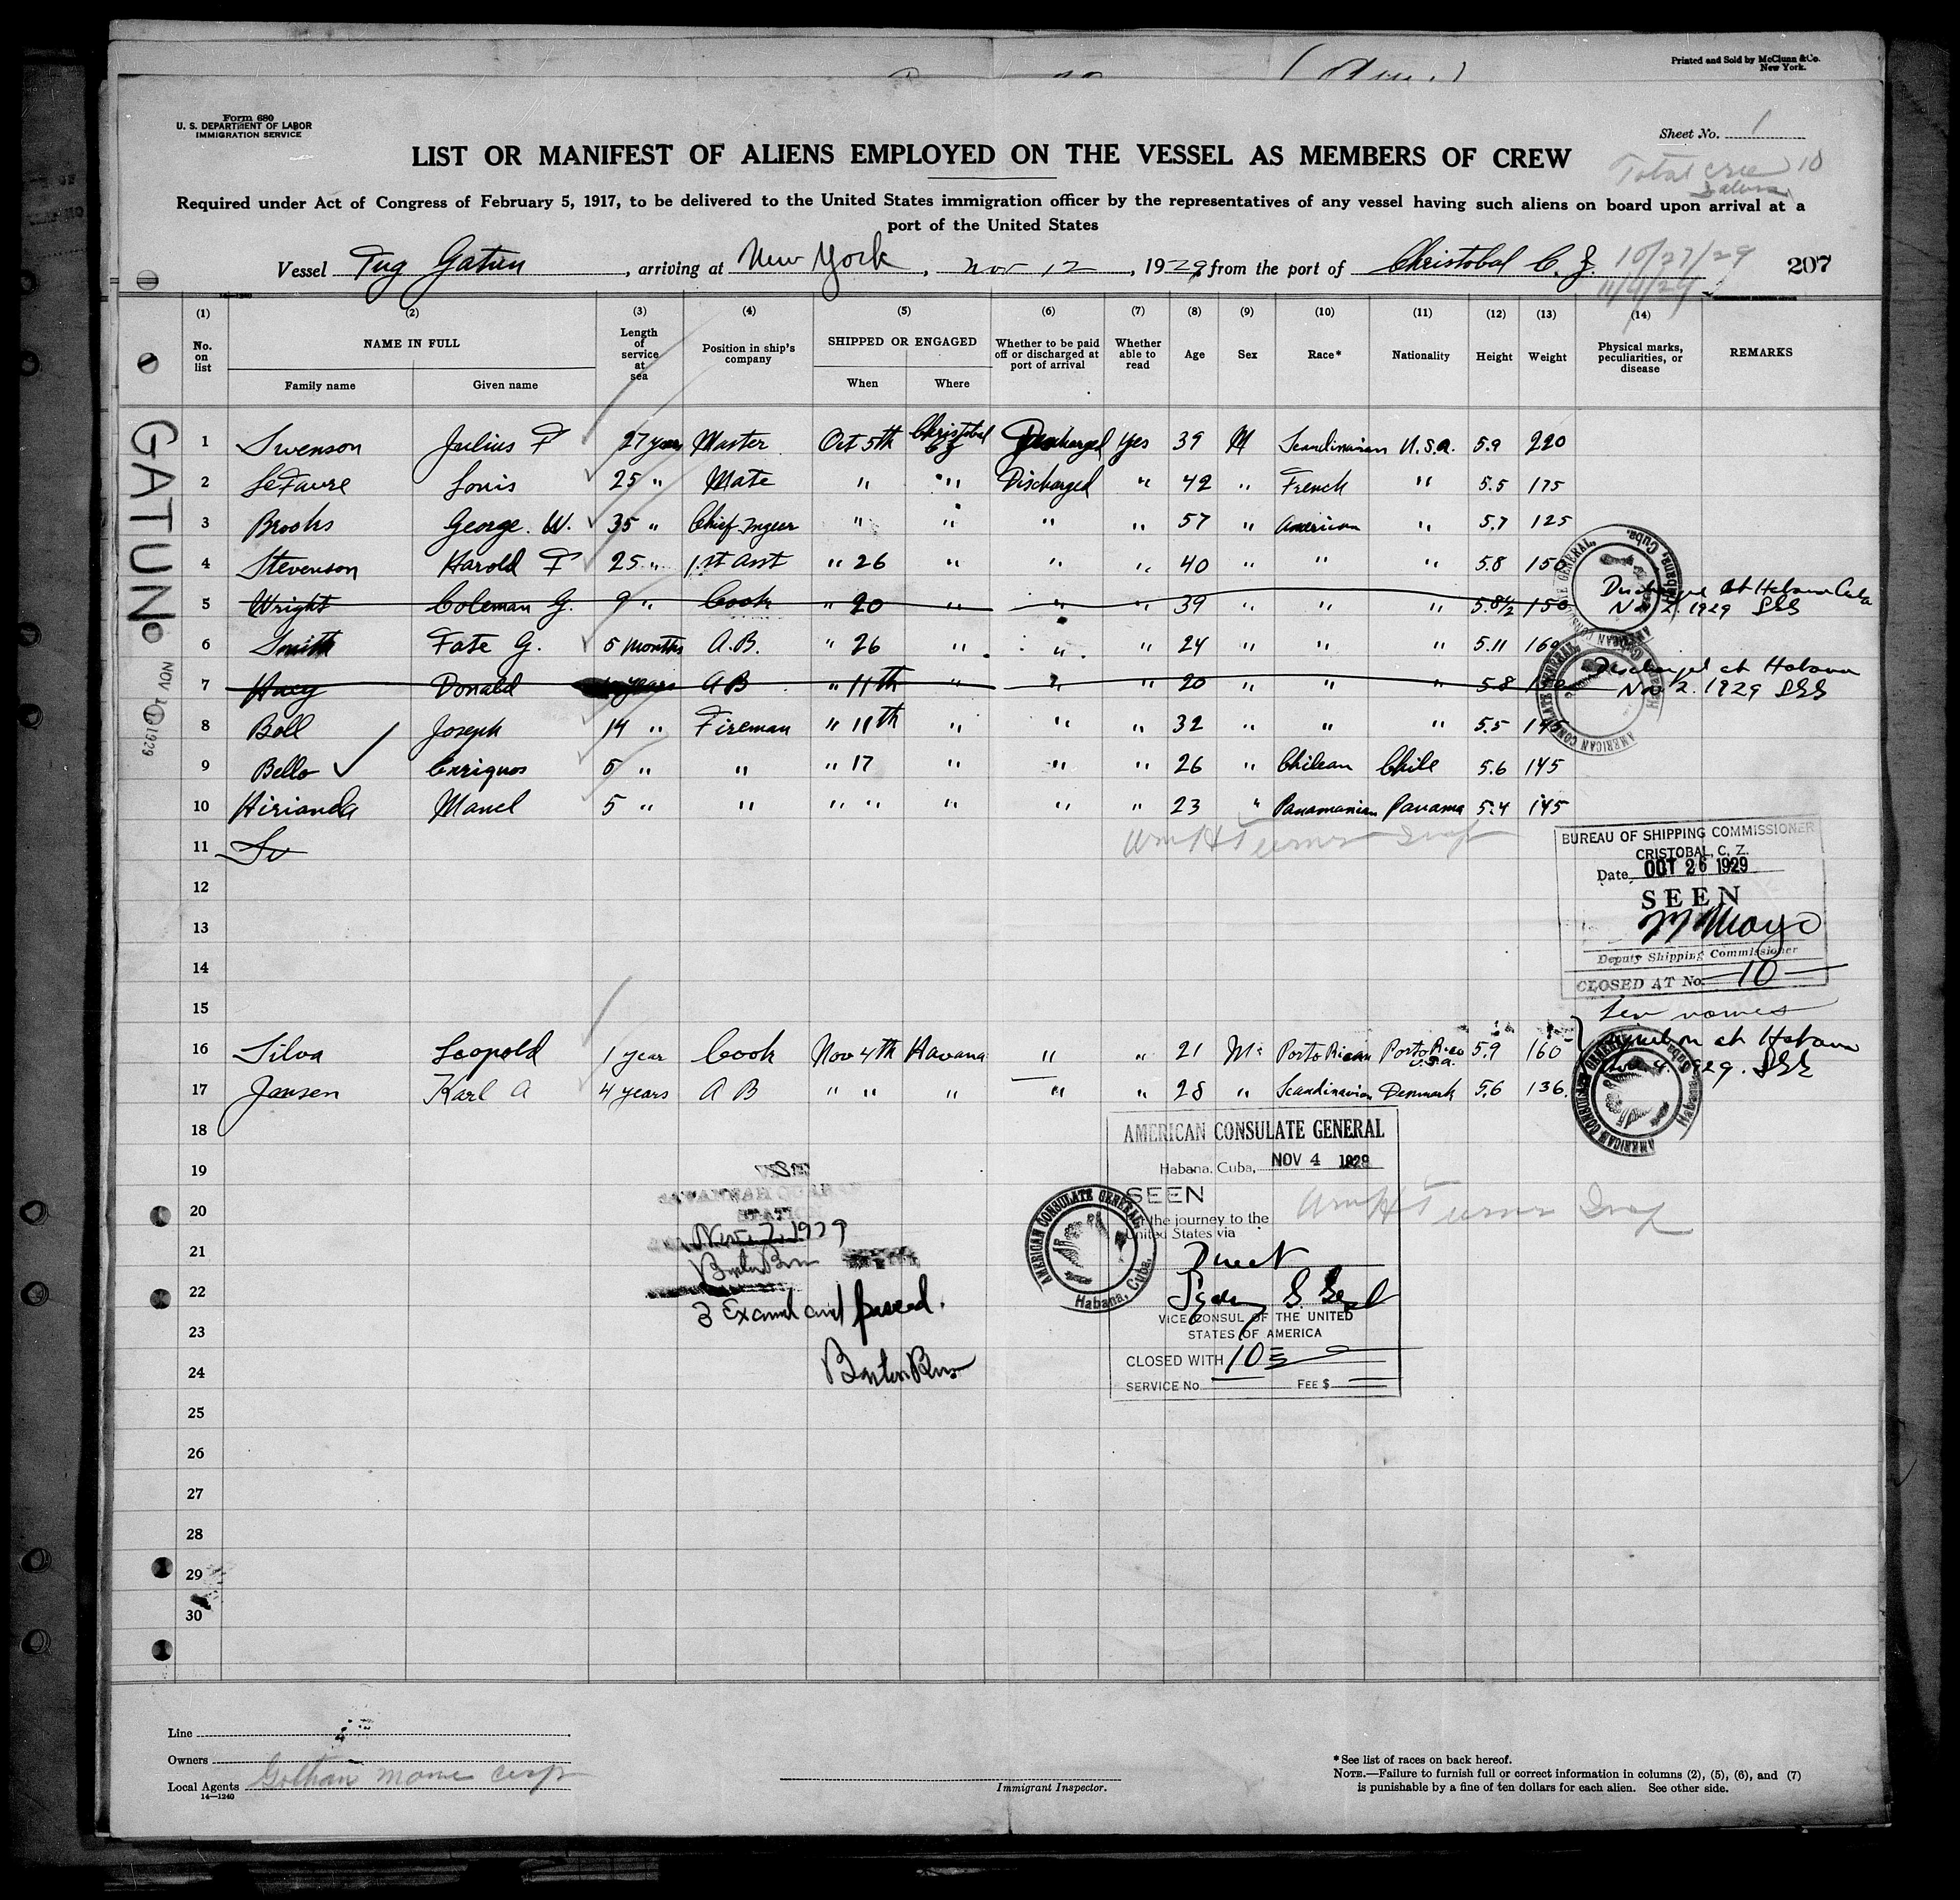 Printed and Sold by McClunn & Co.
New York.
Form 680
U. S. DEPARTMENT OF LABOR
IMMIGRATION SERVICE
Sheet No. 1
LIST OR MANIFEST OF ALIENS EMPLOYED ON THE VESSEL AS MEMBERS OF CREW
Total crew 10
Required under Act of Congress of February 5, 1917, to be delivered to the United States immigration officer by the representatives of any vessel having such aliens on board upon arrival at a
port of the United States
Vessel Tug Gatun, arriving at New York, Nov 12, 1929, from the port of Christobal C. Z. 10/27/29 207
11/4/29
14-1240
(1) (2) (3) (4) (5) (6) (7) (8) (9) (10) (11) (12) (13) (14)
No. on list NAME IN FULL Length of service at sea Position in ship's company SHIPPED OR ENGAGED Whether to be paid off or discharged at port of arrival Whether able to read Age Sex Race* Nationality Height Weight Physical marks, peculiarities, or disease REMARKS
Family name Given name When Where
GATUN
NOV 1 1929
1 Swenson Julius F 27 years Master Oct 5th Christobal C Z Discharged Yes 39 M Scandinavian U.S.A. 5.9 220
2 LeFavre Louis 25 " Mate " " Discharged " 42 " French " 5.5 175
3 Brooks George. W. 35 " Chief Ingeer " " " " 57 " American " 5.7 125
4 Stevenson Harold F 25 " 1st asst " 26 " " " 40 " " " 5.8 150
5 Wright Coleman G. 9 " Cook " 20 " " " 39 " " " 5.8½ 150 Discharged at Habana Cuba
Nov 2 1929 SGG
6 Smith Fate G. 5 months A.B. " 26 " " " 24 " " " 5.11 160
7 Huey Donald years A B " 11th " " " 20 " " " 5.8 Discharged at Habana
Nov 2. 1929 SGG
8 Boll Joseph 14 " Fireman " 11th " " " 32 " " " 5.5 145
9 Bello Enriquos 5 " " " 17 " " " 26 " Chilean Chile 5.6 145
10 Hirianda Manel 5 " " " " " " " 23 " Panamanian Panama 5.4 145
11
Wm H Turner Insp
12
13
14
15
BUREAU OF SHIPPING COMMISSIONER
CRISTOBAL, C. Z.
Date OCT 26 1929
SEEN
M Mayo
Deputy Shipping Commissioner
CLOSED AT No. 10
Ten names
16 Silva Leopold 1 year Cook Nov 4th Havana " " 21 M Porto Rican Porto Rico U.S.A. 5.9 160 Signed on at Habana
17 Jansen Karl A 4 years A B " " " " " 28 " Scandinavian Denmark 5.6 136. Nov 4. 1929. SGG
AMERICAN CONSULATE GENERAL, Habana, Cuba.
AMERICAN CONSULATE GENERAL, Habana, Cuba.
AMERICAN CONSULATE GENERAL, Habana, Cuba.
AMERICAN CONSULATE GENERAL, Habana, Cuba.
18
19
20
21
22
23
24
25
26
27
28
29
30
SAVANNAH
Nov. 7. 1929
3 Examd and passed.
AMERICAN CONSULATE GENERAL
Habana, Cuba, NOV 4 1929
SEEN
the journey to the
United States via
Direct
Wm H Turner Insp
VICE CONSUL OF THE UNITED
STATES OF AMERICA
CLOSED WITH 10
SERVICE No. FEE $
Line
Owners
Local Agents
14—1240
Immigrant Inspector.
*See list of races on back hereof.
NOTE.—Failure to furnish full or correct information in columns (2), (5), (6), and (7)
is punishable by a fine of ten dollars for each alien. See other side.